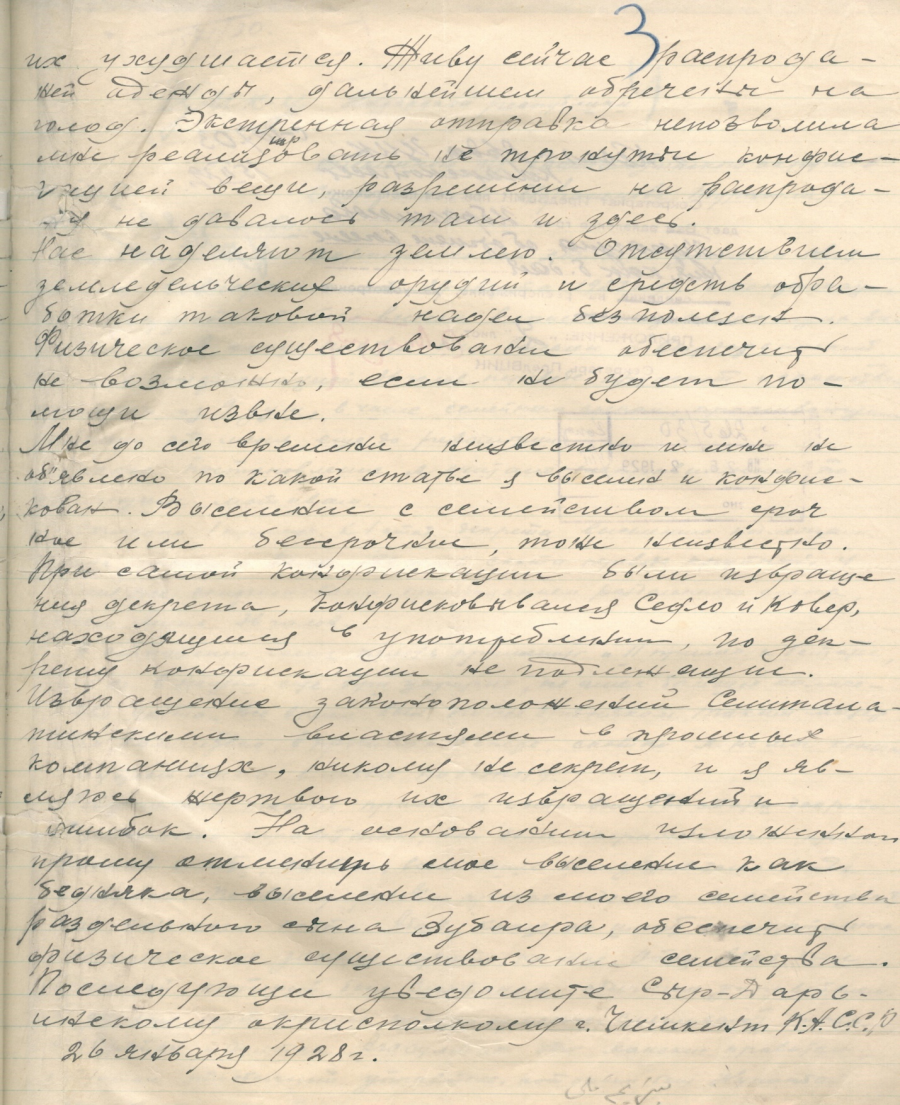 3
их ухудшается. Живу сейчас распрода-
жей одежды, дальнейшем обречены на
голод. Экстренная отправка непозволила
мне реализировать не тронутой конфис-
кацией вещи, разрешении на распрода-
жу не давалось там и здесь.
Нас наделяют землею. Отсутствием
земледельческих орудий и средств обра-
ботки таковой надел безполезен.
Физическое существовании обеспечить
не возможно, если не будет по-
мощи извне.
Мне до сего времени неизвестно и мне не
об'явлено по какой статье я выселен и конфис-
кован. Выселение с семейством сроч
ное или бессрочное, тоже неизвестно.
При самой конфискации были извраще
ния декрета, конфисковывался Седло и Ковер,
находящиеся в употреблении, по дек-
рету конфискации не подлежащие.
Извращение законоположений Семипала-
тинскими властями в прошлые
компаниях, никому не секрет, и я яв-
ляюсь жертвою их извращений и
ошибок. На основании изложенного
прошу отменить мое выселение как
бедняка, выселении из моего семейства
раздельного сына Зубаира, обеспечить
физическое существование семейства.
Последующи уведомите Сыр-Дарь-
инскому окрисполкому г. Чимкент К.А.С.С.
26 января 1928 г.